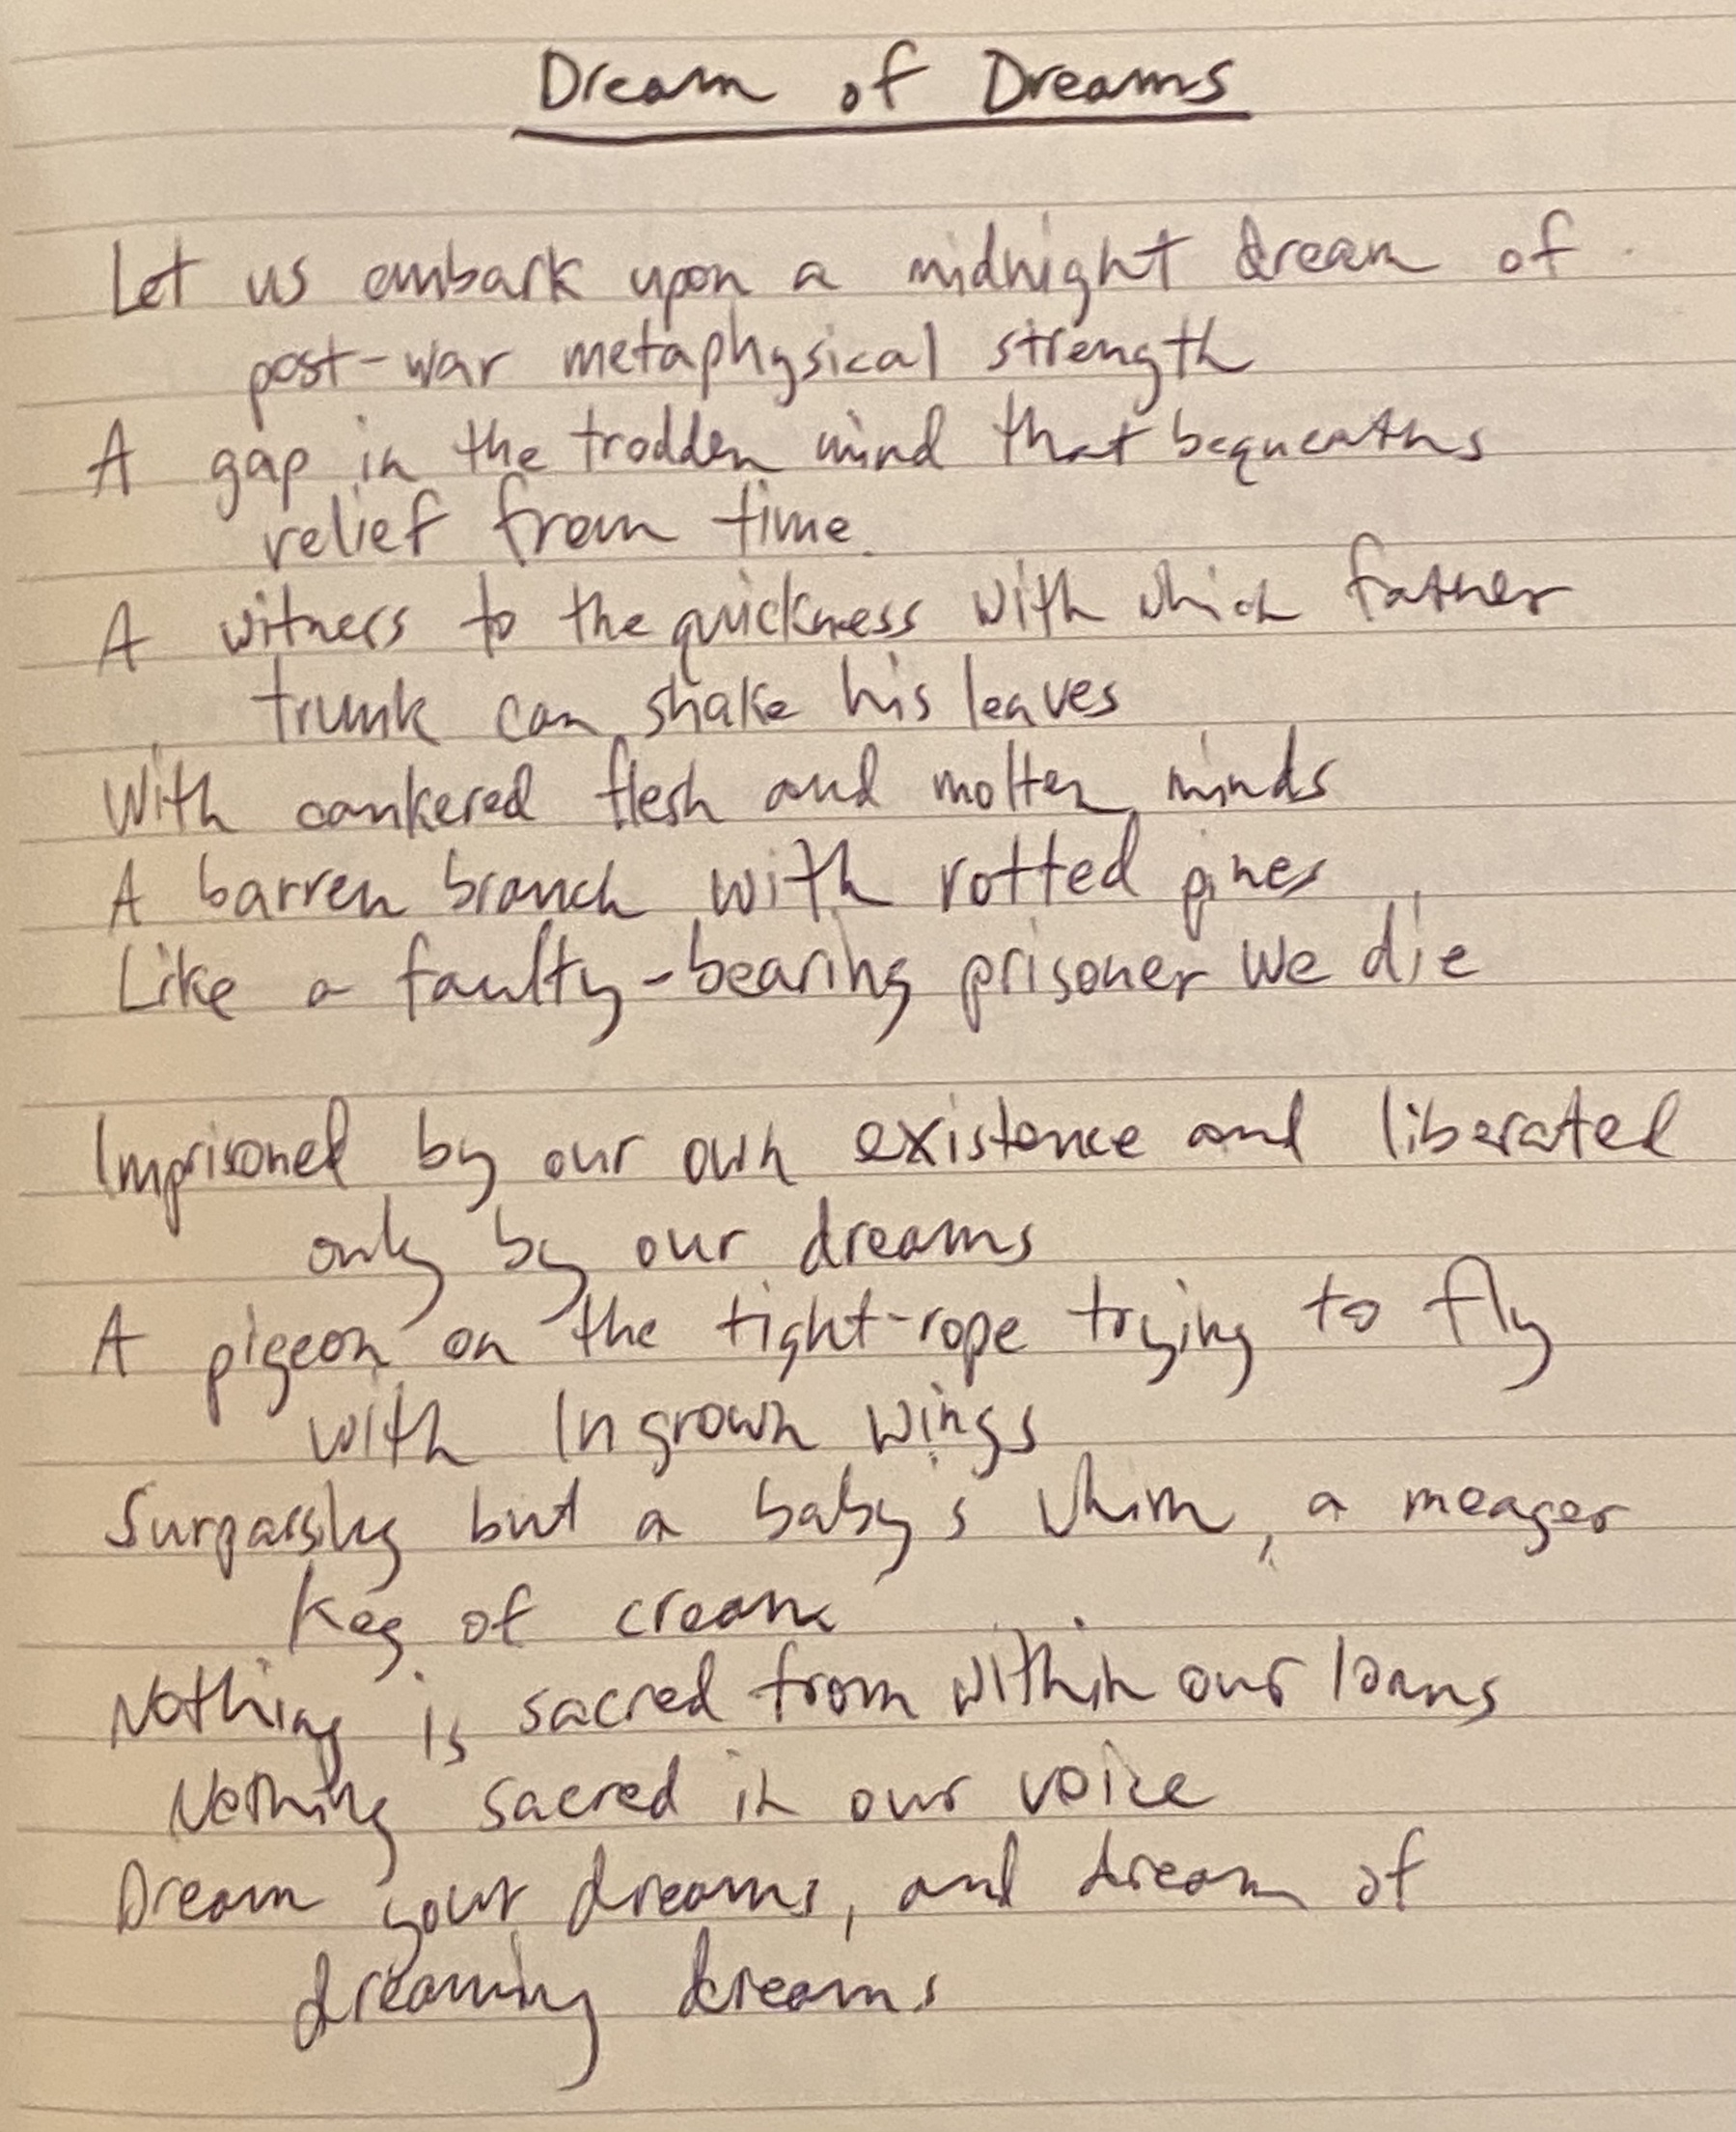 Dream of Dreams
Let us embark upon a midnight dream of
post-war metaphysical strength
A gap in the trodden mind that bequeaths
relief from time.
A witness to the quickness with which father
trunk can shake his leaves
With cankered flesh and molten minds
A barren branch with rotted pines
Like a faulty-bearing prisoner we die
Imprisoned by our own existence and liberated
only by our dreams
A pigeon on the tight-rope trying to fly
with ingrown wings
Surpassing but a baby's whim, a meager
keg of cream
Nothing is sacred from within our
Nothing sacred in our voice
Dream your dreams, and dream of
dreaming dreams